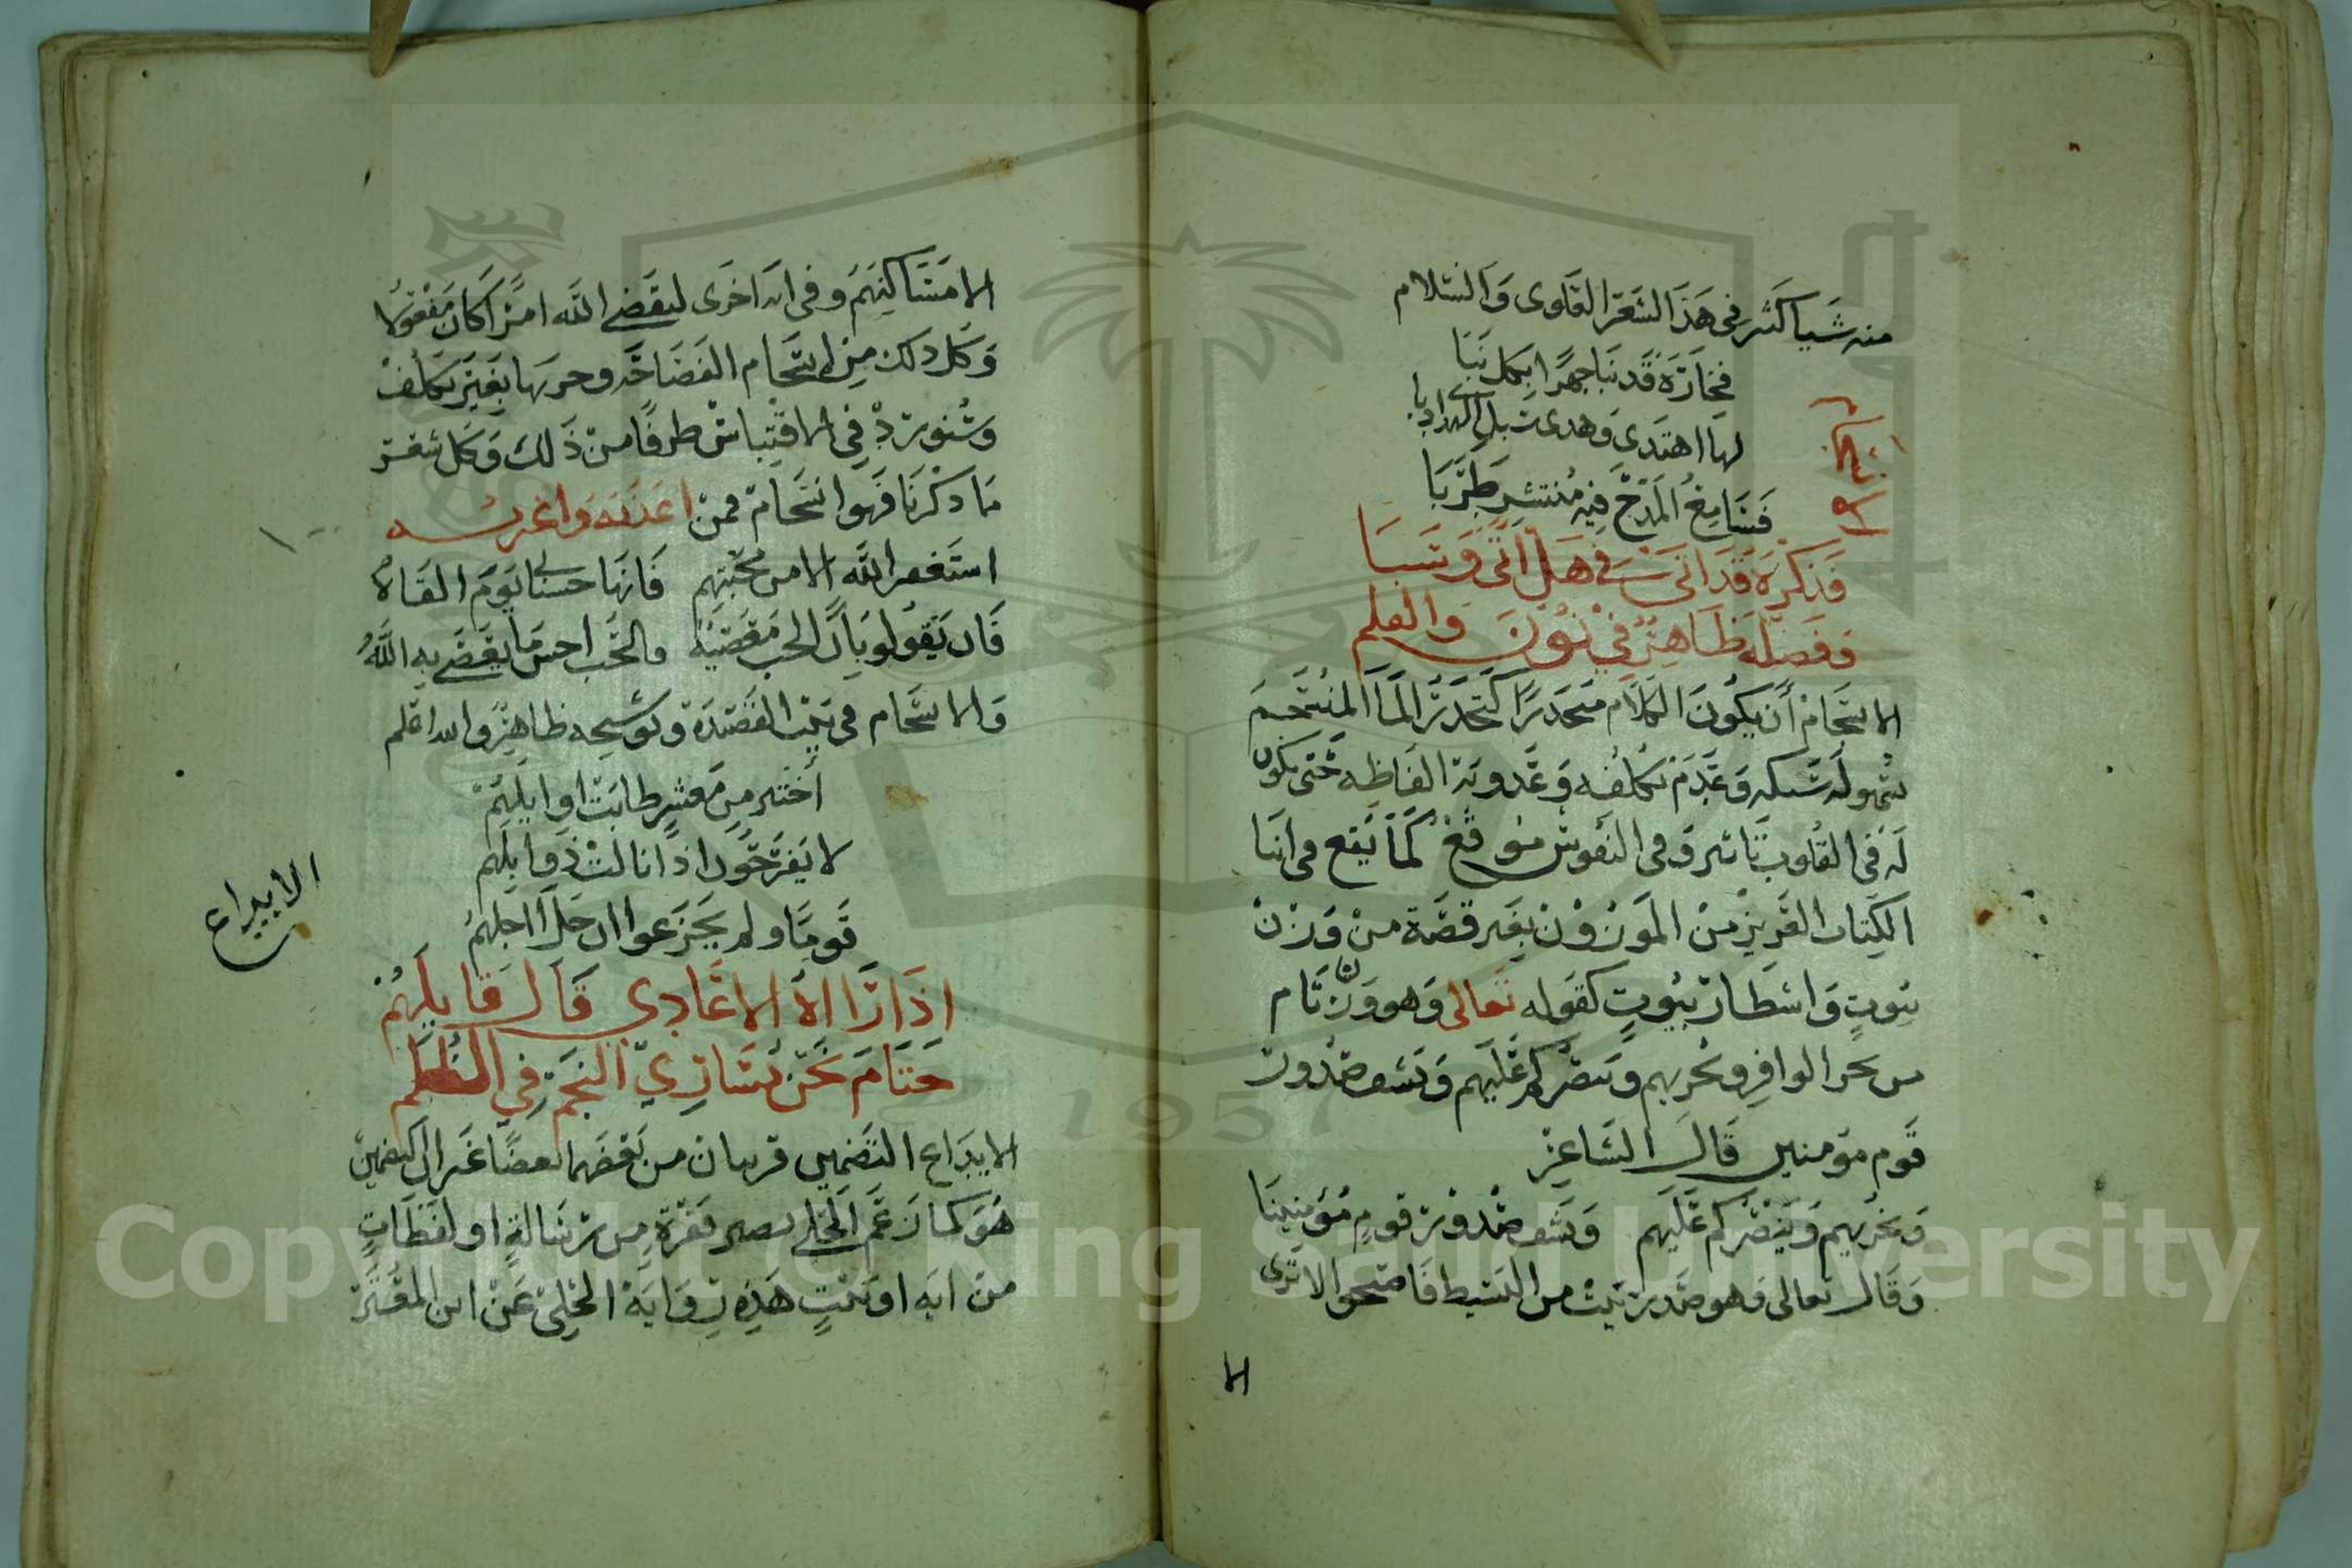 منه شيا كثير في هذا الشعر القاوى والسلام
فخاره قد نبا جهرا بكل نبا
لها اهتدى وهدى
فشامخ المدح فيه منتشر طربا
فذكره قد اتى في هل اتى وسبا
وفضله ظاهر في نون والقلم
الانسجام
الانسجام أن يكون الكلام متحدرا كتحدر الما المنسجم
سهولة سبكه وعدم تكلفه وعذوبة الفاظه حتى يكون
له في القلوب تاثير وفي النفوس موقع كما يقع في اثنا
الكتاب العزيز من الموزون بغير قصة من وزن
بيوت واشطار بيوت كقوله تعالى وهو وزن تام
من بحر الوافر ويخزيهم وينصركم عليهم ويشف صدور
قوم مومنين قال الشاعر
ويخزيهم وينصركم عليهم ويشف صدور قوم مؤمنينا
وقال تعالى وهو صدر بيت من البسيط فاصبحوا لا ترى
الا
الا مساكنهم وفي ايه اخرى ليقضي الله امرا كان مفعولا
وكل ذلك من انسجام الفصاحة وجريها بغير تكلف
وسنورد في الاقتباس طرفا من ذلك وكل شعر
ما ذكرنا فهو انسجام فمن اعذبه واغربه
استغفر الله الا من محبتهم فانها حسناتي يوم القاه
فان يقولو بان الحب معصية فالحب احسن ما يعصى به الله
والانسجام في بيت القصيدة وتوشيحه ظاهر والله اعلم
أختير من معشر طابت اوايلهم
لا يفرحون اذا نالت ذوابلهم
قوما ولم يجزعوا ان حل اجلهم
اذا رآاه الاعادي قال قايلهم
حتام نحن نساري النجم في الظلم
الايداع
الايداع التضمين قريبان من بعضهما بعضا غير ان التضمين
هو كما زعم الحلي يصير فقرة من رسالة او لفظات
من ايه او بيت هذه رواية الحلي عن ابن المعتز